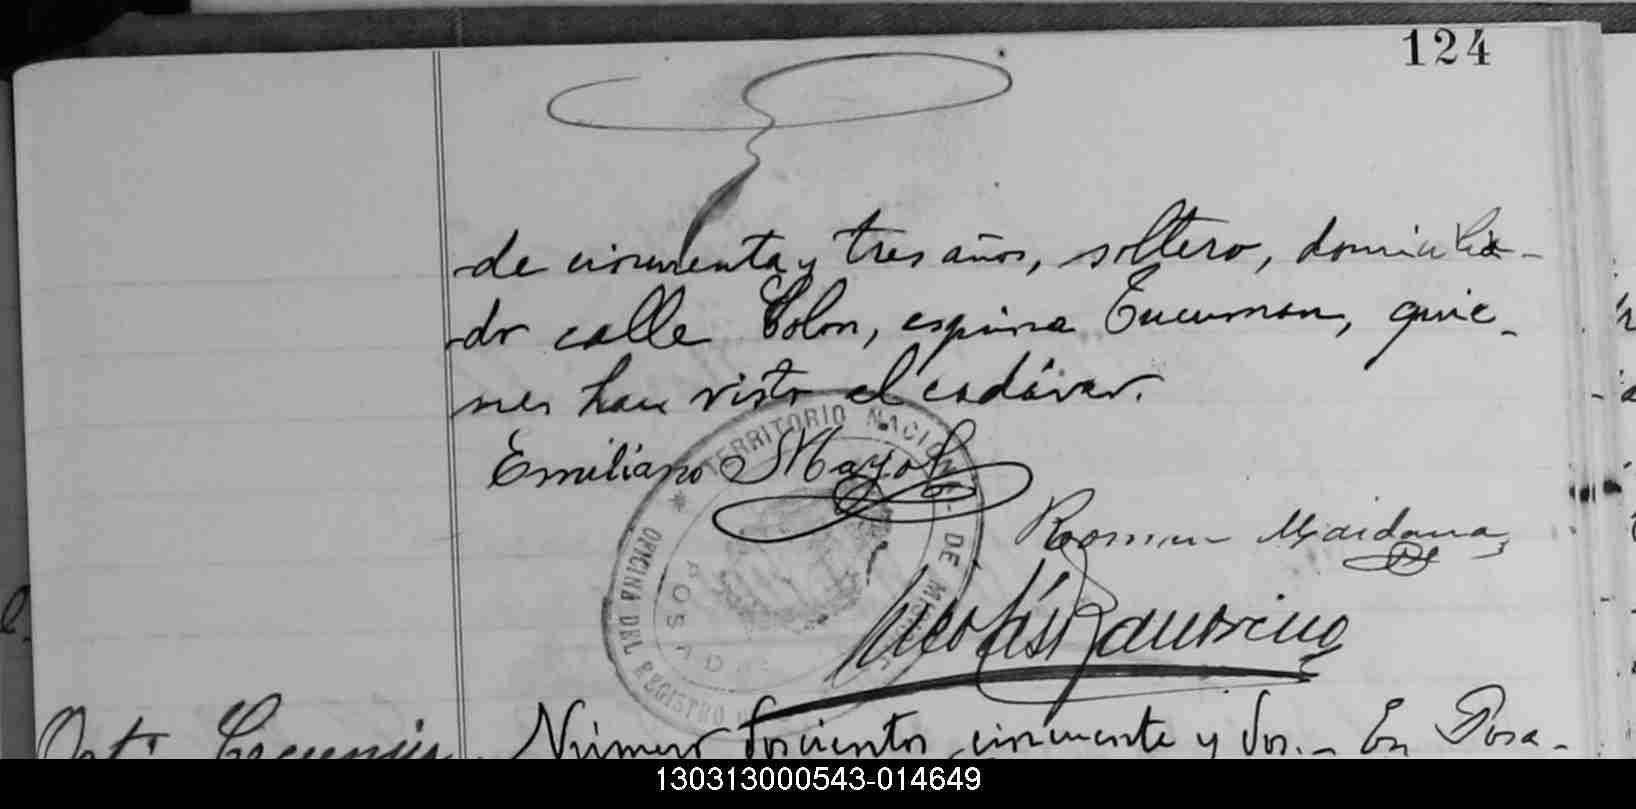 124
de cincuenta y tres años, soltero, domicilia-
do calle Colon, esquina Tucuman, quie-
nes han visto el cadáver.
Emiliano Mayol
TERRITORIO NACIONAL DE
OFICINA DEL REGISTRO
POSADAS
Roman Maidana
Número doscientos cincuenta y dos.- En Posa-
130313000543-014649